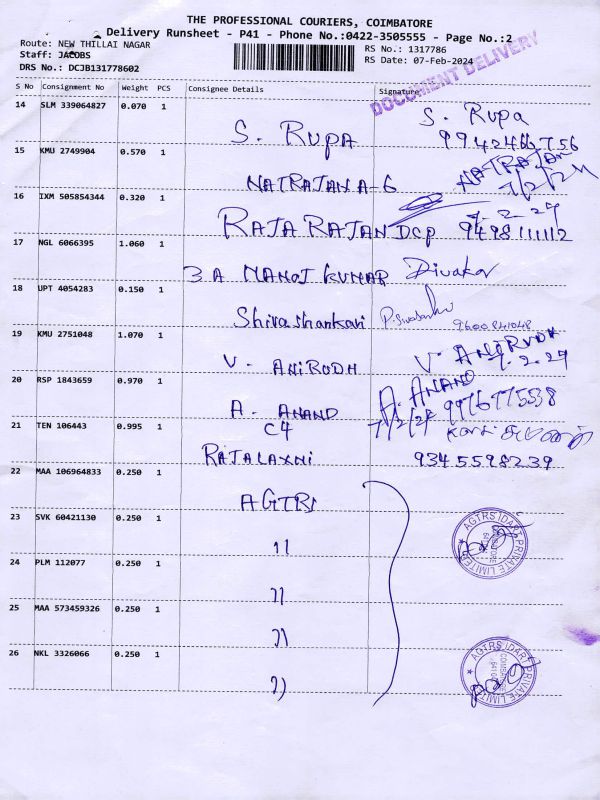 THE PROFESSIONAL COURIERS, COIMBATORE
Delivery Runsheet - P41 - Phone No.:0422-3505555 - Page No.:2
Route: NEW THILLAI NAGAR
Staff: JACOBS
DRS No.: DCJB131778602
RS No.: 1317786
RS Date: 07-Feb-2024
DOCUMENT DELIVERY
S No Consignment No Weight PCS Consignee Details Signature
14 SLM 339064827 0.070 1 S. RUPA S. Rupa
9942466756
15 KMU 2749904 0.570 1 NATRAJAN A-6 NATRAJAN
7/2/24
16 IXM 505854344 0.320 1 RAJA RAJAN DCP 9498111112
7.2.24
17 NGL 6066395 1.060 1 3A MANOJ KUMAR Divakar
18 UPT 4054283 0.150 1 Shivashankari 9600841048
19 KMU 2751048 1.070 1 V. ANIRUDH V. ANIRUDH
7.2.24
20 RSP 1843659 0.970 1 A. ANAND A. ANAND
C4 7/2/24 9976775538
21 TEN 106443 0.995 1 RAJALAXMI 9345598239
22 MAA 106964833 0.250 1 AGTRS
23 SVK 60421130 0.250 1 11
24 PLM 112077 0.250 1 11
25 MAA 573459326 0.250 1 11
26 NKL 3326066 0.250 1 11
AGTRS IDART PRIVATE LIMITED
AGTRS IDART PRIVATE LIMITED